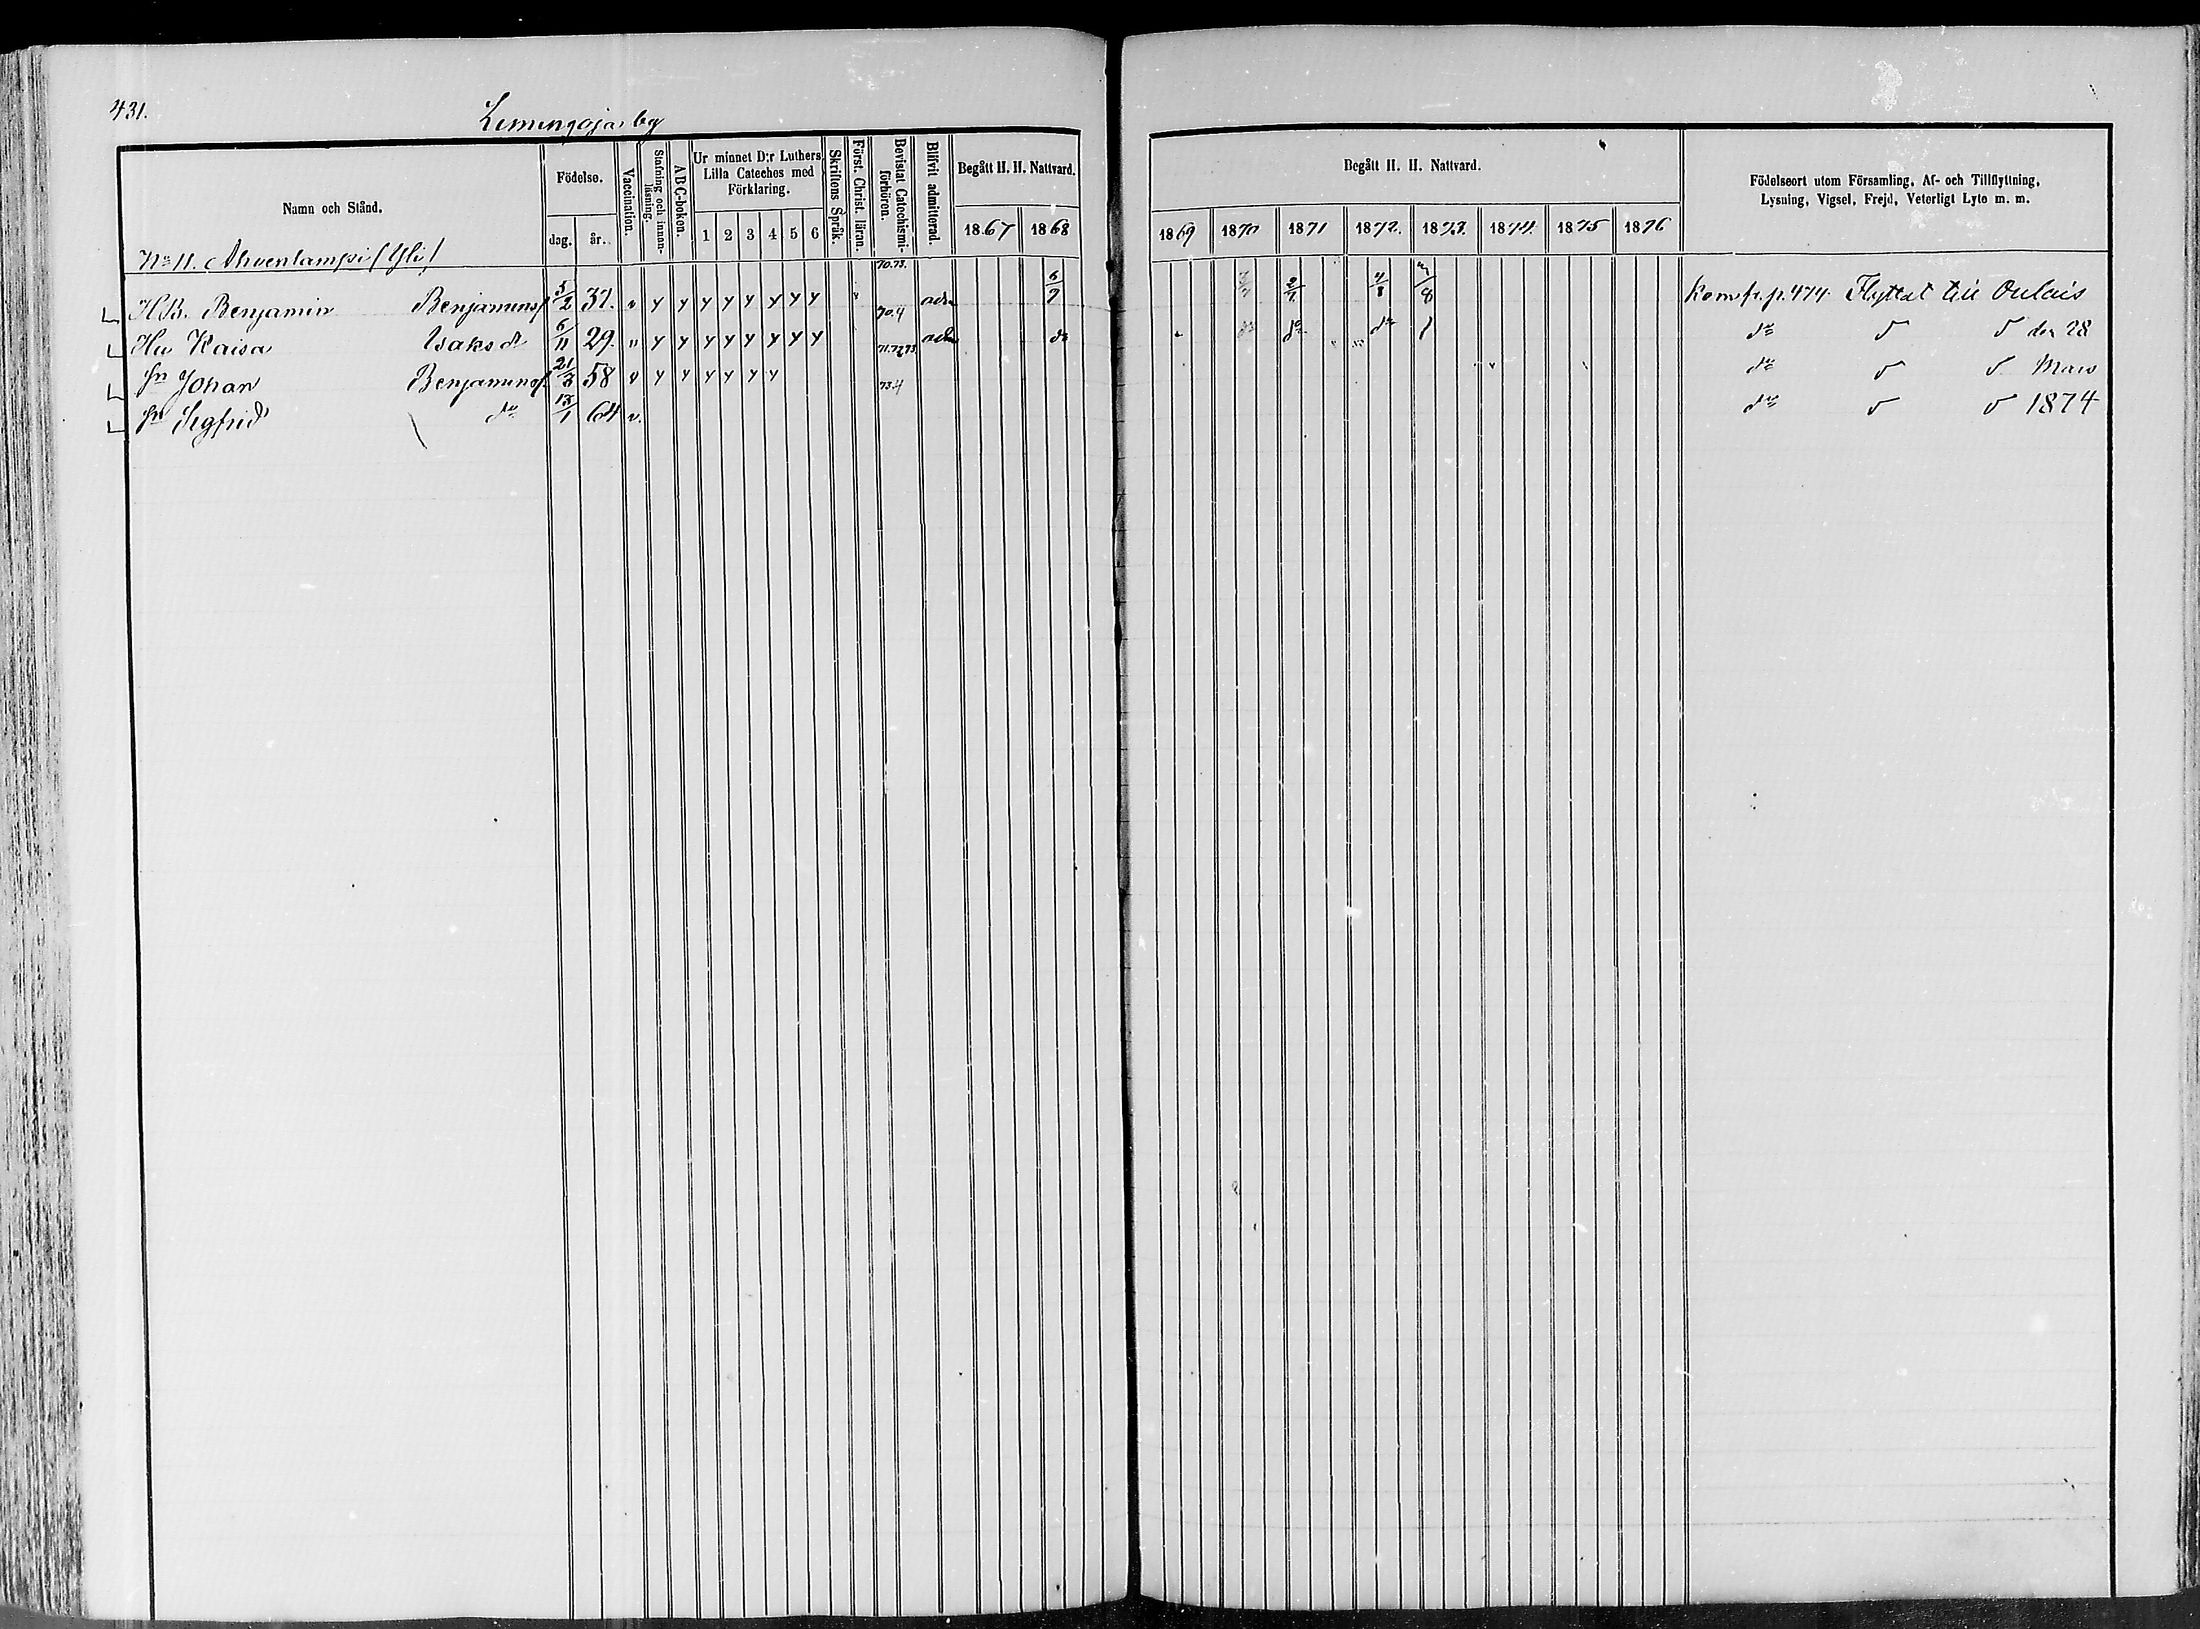 431.
Lemungojarby
Namn och Stånd.
Födelse.
dag.
år.
Vaccination.
Stafning och innanläsning.
A B C-boken.
Ur minnet D:r Luthers Lilla Cateches med Förklaring.
1 2 3 4 5 6
Skriftens Språk.
Först. Christ. läran.
Bevistat Catechismiförhören.
Blifvit admitterad.
Begått H. H. Nattvard.
1867 1868
Begått H. H. Nattvard.
1869 1870 1871 1872. 1873. 1874. 1875 1876
Födelseort utom Församling, Af- och Tillflyttning,
Lysning, Vigsel, Frejd, Veterligt Lyte m. m.
No 11. Ahvenlampi (Yli)
70.73.
HB. Benjamin Benjaminss. 5/2 37. v y y y y y y y y 70.4 adm 6/7 2/7 4/8 /8 Kom fr. p. 474. Flyttat till Oulais
Hu Kaisa Isaks d. 6/11 29. v y y y y y y y y 71.72.73. adm do do do do do den 28
Sn Johan Benjaminss. 21/3 58 v y y y y y y 73.4 do Mars
Sn Sigfrid do 13/1 64 v. do 1874